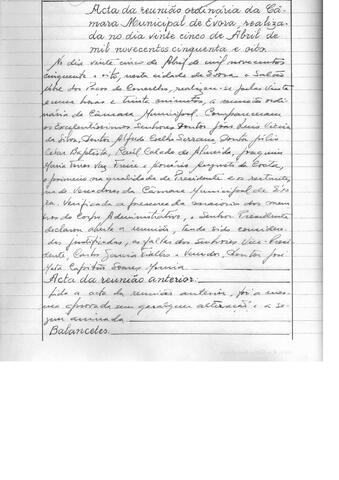 Acta da reunião ordinária da Câ-
mara Municipal de Evora, realiza-
da no dia vinte cinco de Abril de
mil novecentos cinquenta e oito.
No dia vinte cinco de Abril de mil novecentos
cinquenta e oito, nesta cidade de Evora e Salão
Nobre dos Paços do Concelho, realizou-se pelas vinte
e uma horas e trinta minutos, a reunião ordi-
nária da Câmara Municipal. Compareceram
os Excelentissimos Senhores Doutor João Luis Vieira
da Silva, Doutor Alfredo Coelho Serrano, Doutor Júlio
Cesar Baptista, Raúl Calado de Almeida, Joaquim
Maria Vaz Freire e Augusto da Costa,
o primeiro na qualidade de Presidente e os restantes,
na de Vereadores da Câmara Municipal de Evo-
ra. Verificada a presença da maioria dos mem-
bros do Corpo Administrativo, o Senhor Presidente
declarou aberta a reunião, tendo sido considera-
das justificadas, as faltas dos Senhores Vice-Presi-
dente, e Vereador, Doutor José
Capitão
Acta da reunião anterior:
Lida a acta da reunião anterior, foi a mes-
ma aprovada sem qualquer alteração e a se-
guir assinada
Balancetes.